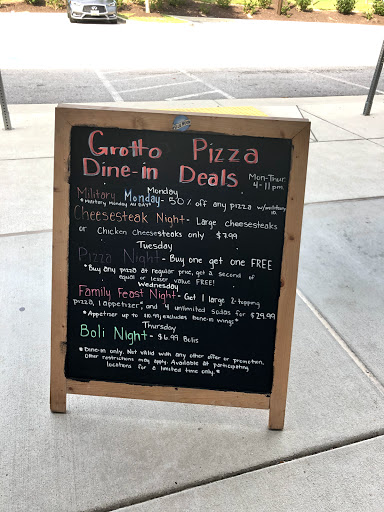 Grotto Pizza
Dine-in Deals
Mon-Thur.
4-11 pm.
Monday
Military Monday- 50% off any pizza w/military ID.
*Military Monday All DAY*
Cheesesteak Night- Large cheesesteaks
or Chicken Cheesesteaks only $7.99
Tuesday
Pizza Night- Buy one get one FREE
*Buy any pizza at regular price, get a second of
equal or lesser value FREE!
Wednesday
Family Feast Night- Get 1 large 2-topping
pizza, 1 appetizer, and 4 unlimited sodas for $29.99
*Appetizer up to $10.99, excludes bone-in wings*
Thursday
Boli Night- $6.99 Bolis
*Dine-in only. Not valid with any other offer or promotion.
Other restrictions may apply. Available at participating
locations for a limited time only.*